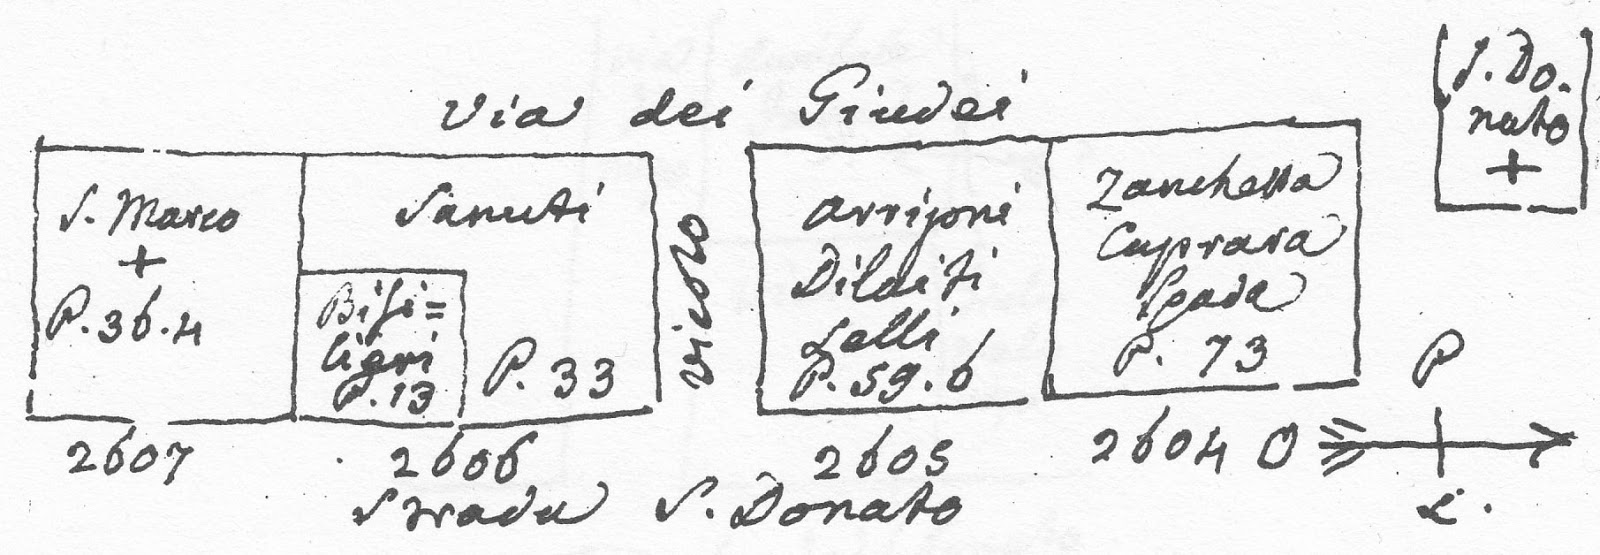 Via dei Giudei
S. Do.
nato
+
S. Marco
+
P. 36.4
Sanuti
Bisi=
lieri
P. 13
P. 33
vicolo
Arrigoni
Dilaiti
Lelli
P. 59.6
Zanchetta
Caprara
Spada
P. 73
2607
2606
2605
2604
Strada S. Donato
O
P
L.